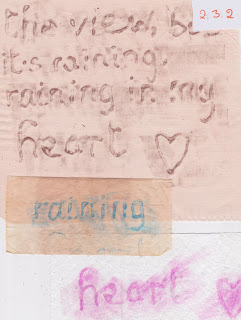 2.3.2
the view, but
it's raining,
raining in my
heart
raining
heart